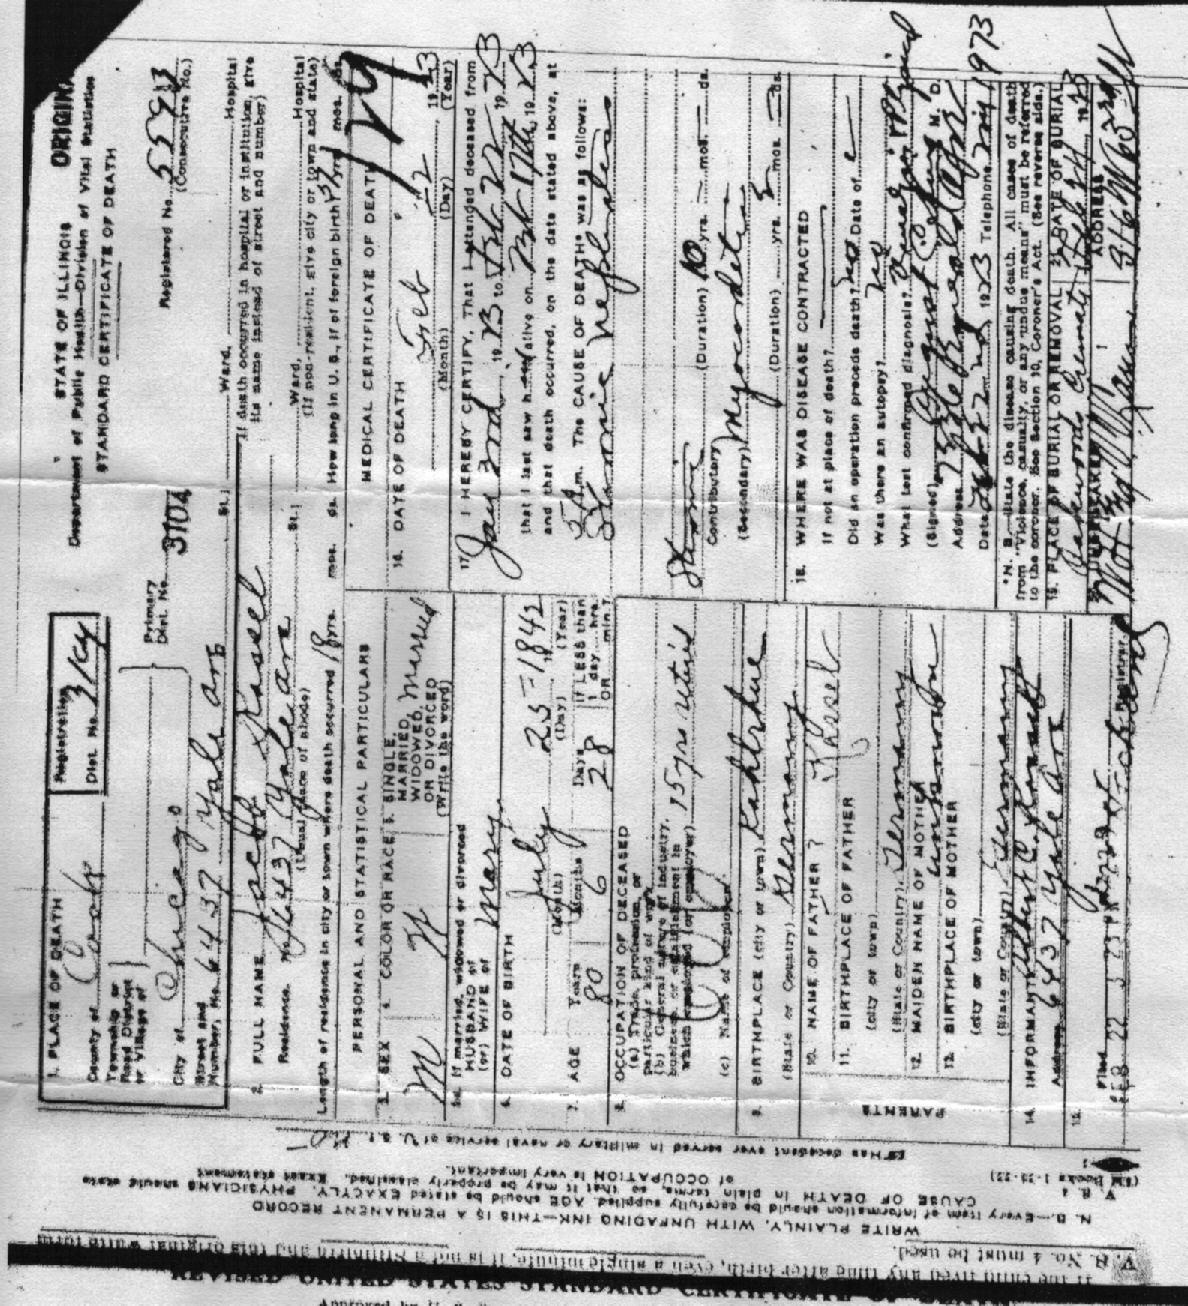 ORIGINAL
STATE OF ILLINOIS
Department of Public Health—Division of Vital Statistics
STANDARD CERTIFICATE OF DEATH
1. PLACE OF DEATH
Registration Dist. No. 3104
County of Cook
Township or
Road District
or Village of
Primary Dist. No. 3104
Registered No.
(Consecutive No.)
City of Chicago
Street and Number, No. 6437 Yale Ave St.; Ward, Hospital
(If death occurred in hospital or institution, give its name instead of street and number)
2. FULL NAME Jacob Kassel
Residence. No. 6437 Yale ave St.; Ward, Hospital
(Usual place of abode) (If non-resident, give city or town and state)
Length of residence in city or town where death occurred 18 yrs. mos. ds. How long in U. S., if of foreign birth? yrs. mos. ds.
PERSONAL AND STATISTICAL PARTICULARS
3. SEX M
4. COLOR OR RACE W
5. SINGLE, MARRIED, WIDOWED, OR DIVORCED (Write the word) Married
5a. If married, widowed or divorced
HUSBAND of
(or) WIFE of Mary
6. DATE OF BIRTH July 25 - 1842
(Month) (Day) (Year)
7. AGE Years 80 Months 6 Days 28 If LESS than 1 day hrs. OR min.?
8. OCCUPATION OF DECEASED
(a) Trade, profession, or particular kind of work
(b) General nature of industry, business, or establishment in which employed (or employer) 15 yrs retired
(c) Name of employer
9. BIRTHPLACE (city or town)
(State or Country) Germany
PARENTS
10. NAME OF FATHER ? Kassel
11. BIRTHPLACE OF FATHER
(city or town)
(State or Country) Germany
12. MAIDEN NAME OF MOTHER unknown
13. BIRTHPLACE OF MOTHER
(city or town)
(State or Country) Germany
14. INFORMANT
Address 6437 Yale Ave
15. Filed FEB 22 1923
Registrar
MEDICAL CERTIFICATE OF DEATH
129
16. DATE OF DEATH Feb 22 1923
(Month) (Day) (Year)
17. I HEREBY CERTIFY, That I attended deceased from
Jan 3rd, 1923 to Feb 22, 1923
that I last saw h alive on Feb 17th, 1923
and that death occurred, on the date stated above, at
m. The CAUSE OF DEATH* was as follows:
Chronic Nephritis
Chronic (Duration) 10 yrs. mos. ds.
Contributory Myocarditis
(Secondary) (Duration) yrs. mos. ds.
18. WHERE WAS DISEASE CONTRACTED
If not at place of death?
Did an operation precede death? no Date of
Was there an autopsy? no
What test confirmed diagnosis?
(Signed) August M. D.
Address
Date Feb 22nd 1923 Telephone
*N. B.—State the disease causing death. All cases of death from "violence, casualty, or any undue means" must be referred to the coroner. See Section 10, Coroner's Act. (See reverse side.)
19. PLACE OF BURIAL OR REMOVAL
Oakwoods
DATE OF BURIAL
Feb 24 1923
20. UNDERTAKER
ADDRESS
Has decedent ever served in military or naval service of U. S.? no
N. B.—Every item of information should be carefully supplied. AGE should be stated EXACTLY. PHYSICIANS should state
CAUSE OF DEATH in plain terms, so that it may be properly classified. Exact statement
of OCCUPATION is very important.
WRITE PLAINLY, WITH UNFADING INK—THIS IS A PERMANENT RECORD
V. S. No. 4 must be used.
If the child lived any time after birth, even a single minute, it is not a Stillbirth and this original white form
REVISED UNITED STATES STANDARD CERTIFICATE OF DEATH